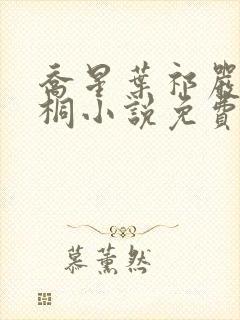 喬星葉祁嚴
桐小說免費
慕薰然